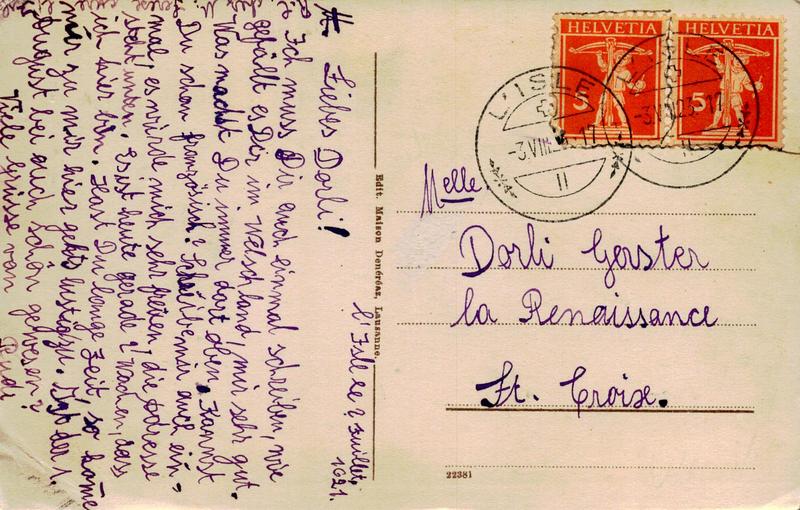 l'Isle le 2 Juillet,
1921.
Liebes Dorli!
Ich muss Dir auch einmal schreiben, wie
gefällt es Dir im Welschland, mir sehr gut.
Was machst Du immer dort oben. Kannst
Du schon französisch? Schreibe mir auch ein-
mal, es würde mich sehr freuen, die Adresse
steht unten. Es ist heute gerade 9 Wochen, das
ich hier bin. Hast Du lange Zeit, so komme
mir zu mir hier gehts lustig zu. Ist der 1.
August bei euch schön gewesen?
Viele Grüsse von
Rudi
Edit. Maison Denéréaz, Lausanne.
HELVETIA
5
HELVETIA
5
L'ISLE
-3.VIII. -17
II
L'ISLE
-3.VIII.23-17
II
Melle
Dorli Gerster
la Renaissance
St. Croix.
22381